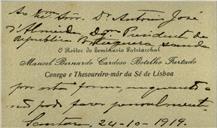 Ao Exmo Snr. Dr. Antonio José
d'Almeida, Dgmo Presidente da
Republica Portugueza manda
O Reitor do Seminario Patriarchal
Manuel Bernardo Cardoso Botelho Furtado
Conego e Thesoureiro-mór da Sé de Lisboa
por esta forma,
não pode fazer pessoalmente
Santarem 24-10-1919.